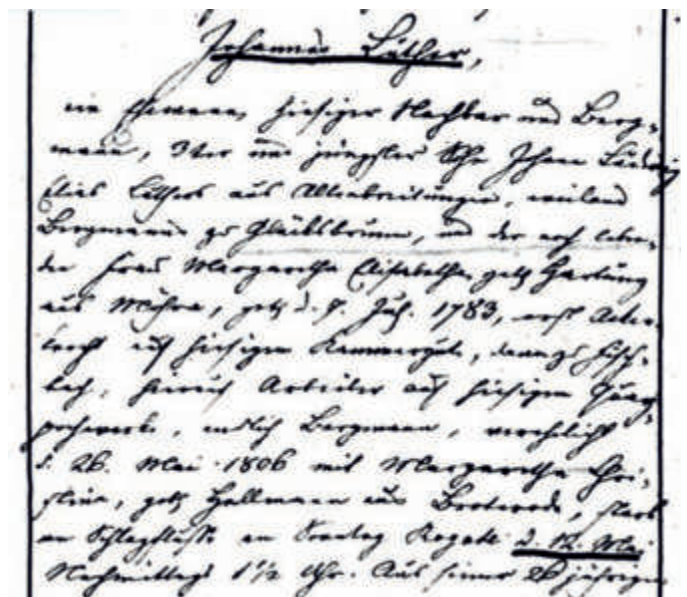 Johannes Luther,
ein Ehemann, hiesiger Nachbar und Berg-
mann, 3ter und jüngster Sohn Johann Ludwig
Elias Luthers aus Altenbreitungen, weiland
Bergmanns zu Glücksbrunn, und der noch leben-
den Frau Margaretha Elisabetha geb. Hartung
aus Möhra, geb. d. 9. Jul. 1783, erst Acker-
knecht auf hiesigem Kammergute, dann zu Fisch-
bach, hierauf Arbeiter auf hiesigem
pochwerke, endlich Bergmann, verehelicht
d. 26. Mai 1806 mit Margaretha Chri-
stina, geb. Hallmann aus Brotterode, starb
am Schlagflusse am Sonntag Rogate d. 12. Mai
Nachmittags 1½ Uhr. Aus seiner jährigen